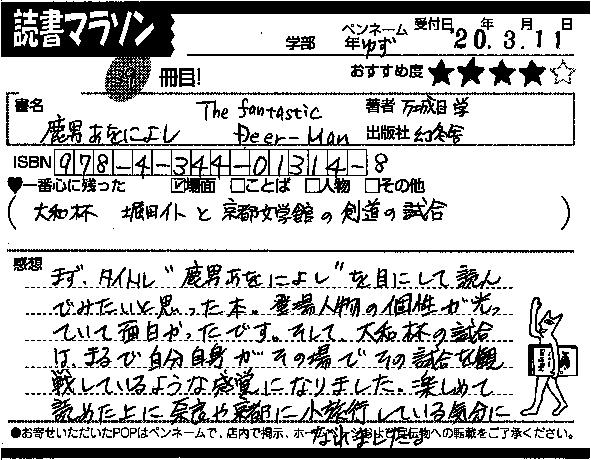 読書マラソン
学部 年 ペンネーム ゆず 受付日 20年 3月 11日
冊目! おすすめ度 ★★★★☆
書名 鹿男あをによし The fantastic Deer-Man
著者 万城目 学
出版社 幻冬舎
ISBN 978-4-344-01314-8
♥一番心に残った ☑場面 □ことば □人物 □その他
(大和杯 堀田イト と 京都文学館の剣道の試合)
感想
まず、タイトル"鹿男あをによし"を目にして読ん
でみたいと思った本。登場人物の個性が光っ
ていて面白かったです。そして、大和杯の試合
は、まるで自分自身がその場でその試合を観
戦しているような感覚になりました。楽しめて
読めた上に奈良や京都に小旅行している気分に
なれました
●お寄せいただいたPOPはペンネームで、店内で掲示、ホームページおよび宣伝物への転載をご了承ください。